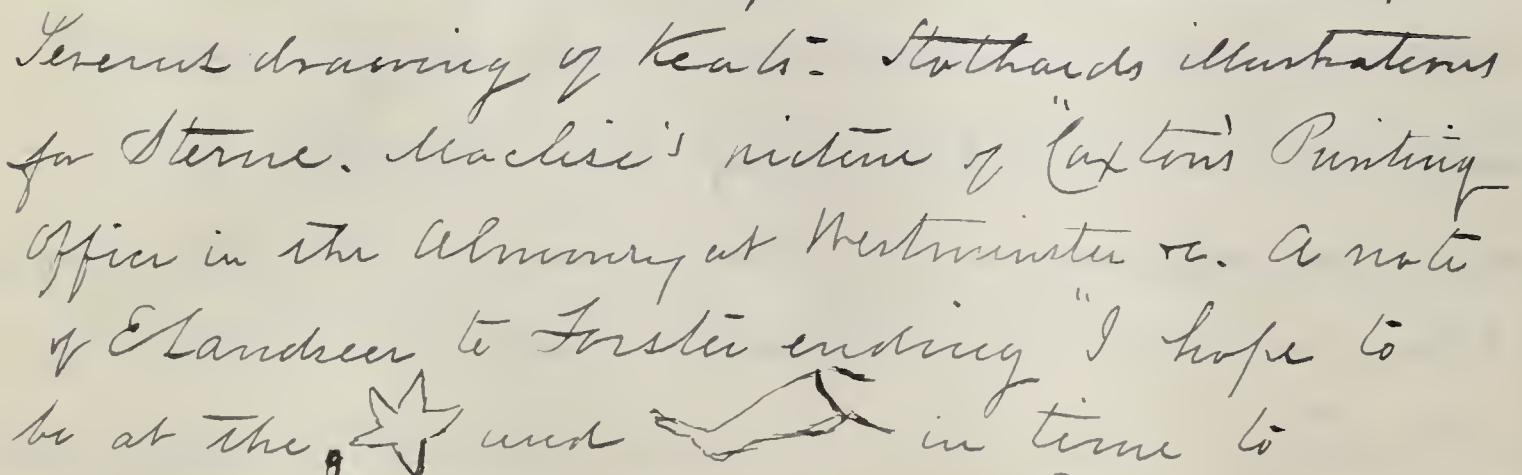 Severn's drawing of Keats. Stothards illustrations
for Sterne. Maclise's picture of "Caxton's Printing
Office in the Almonry at Westminster &c. A note
of E Landseer to Forster ending "I hope to
be at the and in time to